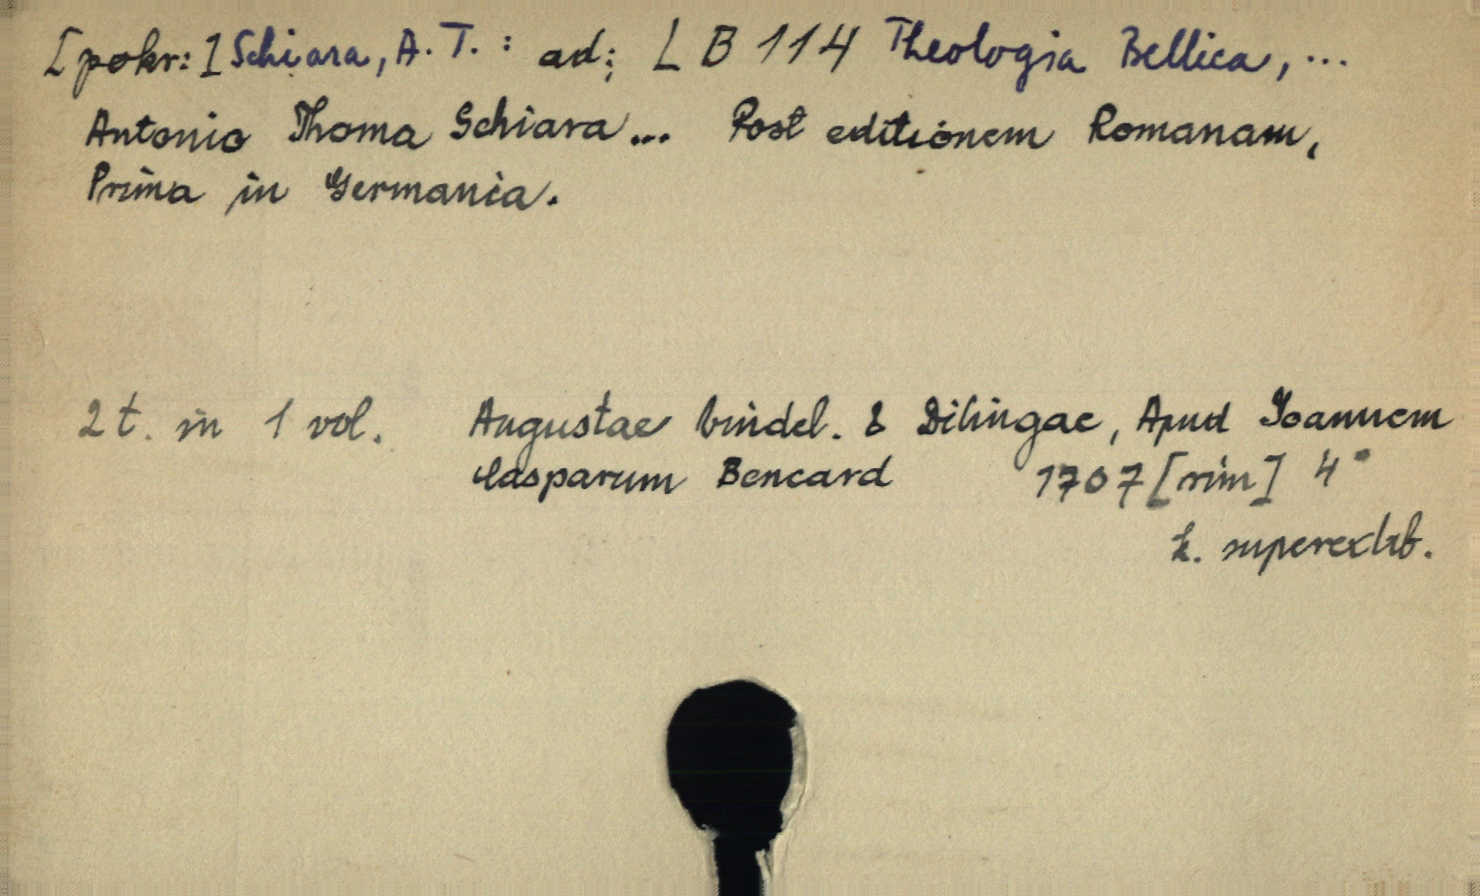 [pokr:] Schiara, A. T. : ad; L B 114 Theologia Bellica, ...
Antonio Thoma Schiara... Post editionem Romanam,
Prima in Germania.
2 t. in 1 vol. Augustae Vindel. & Dilingae, Apud Joannem
Casparum Bencard 1707 [rim] 4°
k. superexlib.